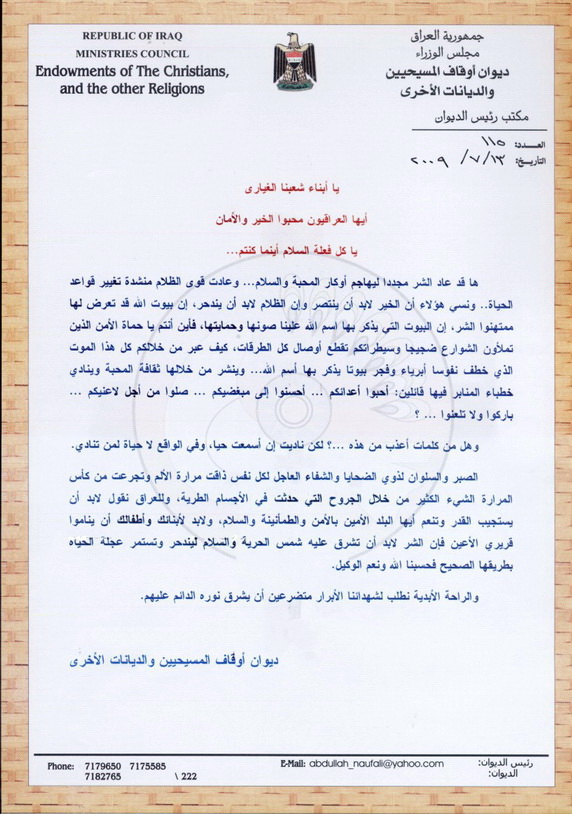 REPUBLIC OF IRAQ
MINISTRIES COUNCIL
Endowments of The Christians,
and the other Religions
جمهورية العراق
مجلس الوزراء
ديوان أوقاف المسيحيين
والديانات الأخرى
مكتب رئيس الديوان
العدد: ١١٥
التأريخ: ١٣/ ٧/ ٢٠٠٩
يا أبناء شعبنا الغيارى
أيها العراقيون محبوا الخير والأمان
يا كل فعلة السلام أينما كنتم...
ها قد عاد الشر مجددا ليهاجم أوكار المحبة والسلام... وعادت قوى الظلام منشدة تغيير قواعد
الحياة.. ونسي هؤلاء أن الخير لابد أن ينتصر وإن الظلام لابد أن يندحر، إن بيوت الله قد تعرض لها
ممتهنوا الشر، إن البيوت التي يذكر بها اسم الله علينا صونها وحمايتها، فأين أنتم يا حماة الأمن الذين
تملأون الشوارع ضجيجا وسيطراتكم تقطع أوصال كل الطرقات، كيف عبر من خلالكم كل هذا الموت
الذي خطف نفوسا أبرياء وفجر بيوتا يذكر بها أسم الله... وينشر من خلالها ثقافة المحبة وينادي
خطباء المنابر فيها قائلين: أحبوا أعدائكم ... أحسنوا إلى مبغضيكم ... صلوا من أجل لاعنيكم ...
باركوا ولا تلعنوا ... ؟
وهل من كلمات أعذب من هذه ...؟ لكن ناديت إن أسمعت حيا، وفي الواقع لا حياة لمن تنادي.
الصبر والسلوان لذوي الضحايا والشفاء العاجل لكل نفس ذاقت مرارة الألم وتجرعت من كأس
المرارة الشيء الكثير من خلال الجروح التي حدثت في الأجسام الطرية، وللعراق نقول لابد أن
يستجيب القدر وتنعم أيها البلد الأمين بالأمن والطمأنينة والسلام، ولابد لأبنائك وأطفالك أن يناموا
قريري الأعين فإن الشر لابد أن تشرق عليه شمس الحرية والسلام ليندحر وتستمر عجلة الحياه
بطريقها الصحيح فحسبنا الله ونعم الوكيل.
والراحة الأبدية نطلب لشهدائنا الأبرار متضرعين أن يشرق نوره الدائم عليهم.
ديوان أوقاف المسيحيين والديانات الأخرى
Phone: 7179650 7175585
7182765 \ 222
E-Mail: abdullah_naufali@yahoo.com
رئيس الديوان:
الديوان: